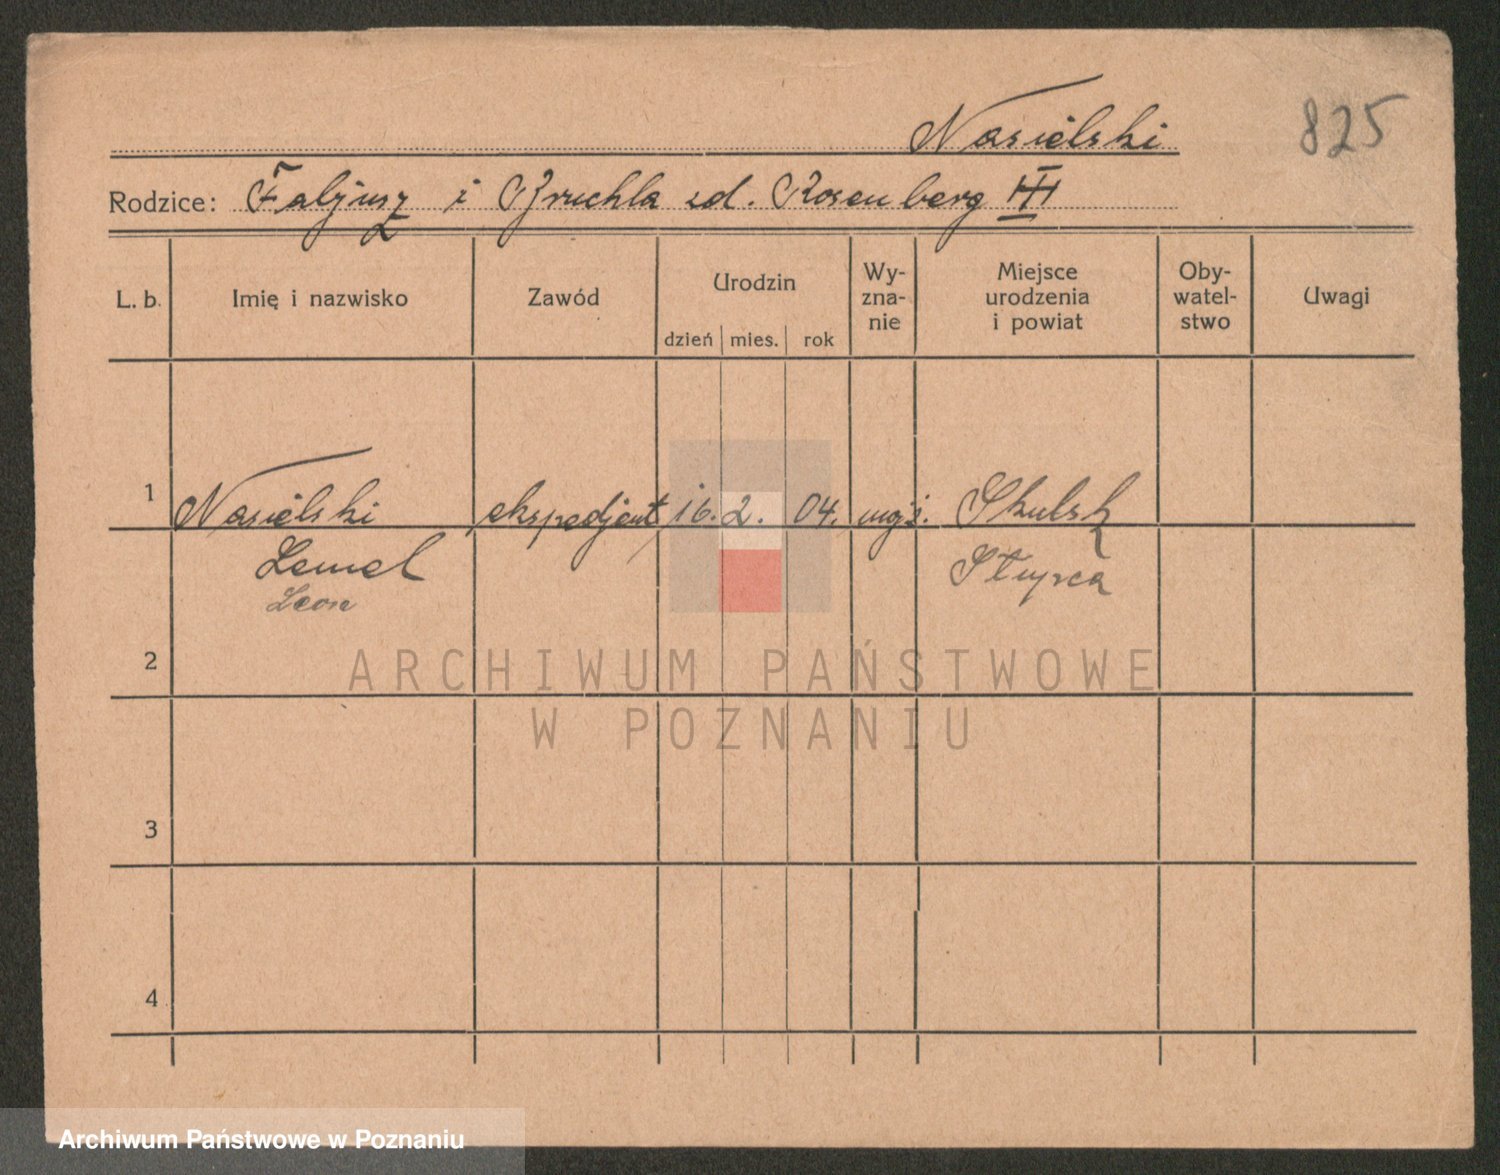 Nasielski
825
Rodzice: Faljusz i Bruchla zd. Rosenberg III
L. b. Imię i nazwisko Zawód Urodzin dzień mies. rok Wy-zna-nie Miejsce urodzenia i powiat Oby-watel-stwo Uwagi
1 Nasielski ekspedjent 16. 2. 04. mojż. Skulsk
Lemel Słupca
Leon
2
3
4
ARCHIWUM PAŃSTWOWE
W POZNANIU
Archiwum Państwowe w Poznaniu